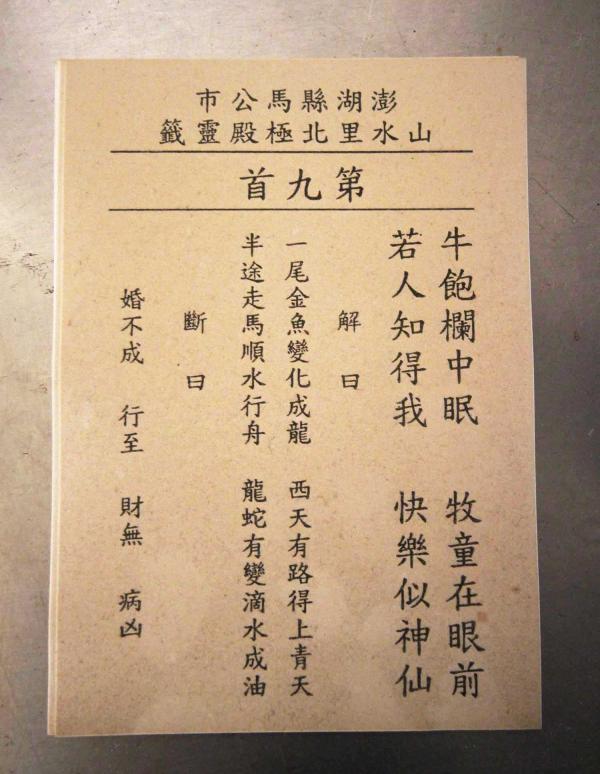 澎湖縣馬公市
山水里北極殿靈籤
第九首
牛飽欄中眠 牧童在眼前
若人知得我 快樂似神仙
解曰
一尾金魚變化成龍 西天有路得上青天
半途走馬順水行舟 龍蛇有變滴水成油
斷曰
婚不成 行至 財無 病凶